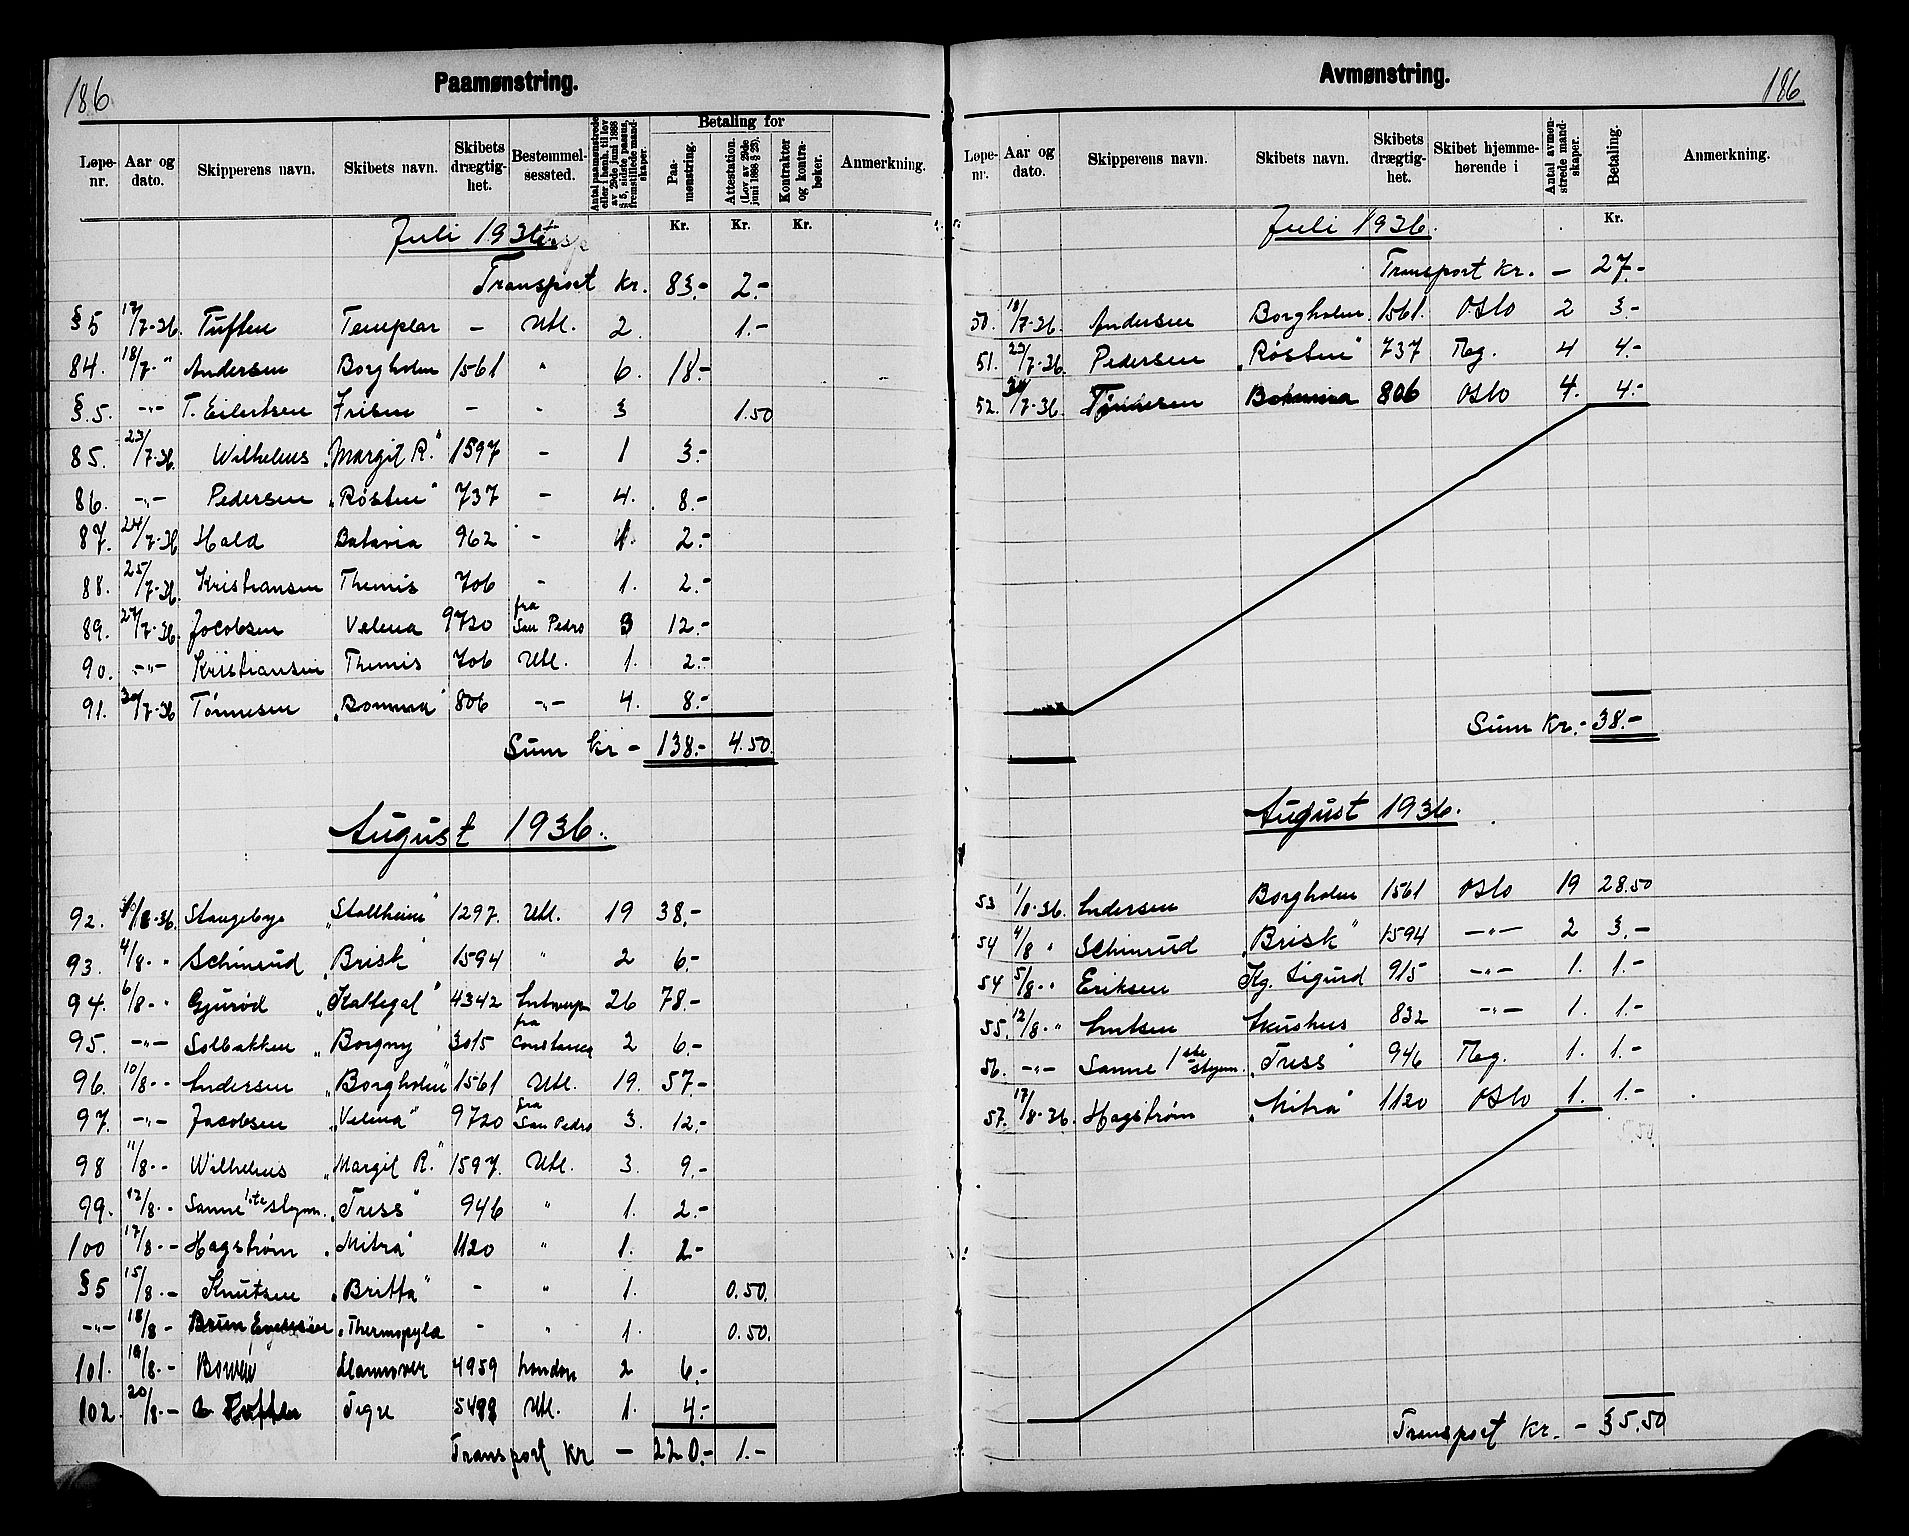 186
Paamønstring.
Løpe-nr. Aar og dato. Skipperens navn. Skibets navn. Skibets drægtig-het. Bestemmel-sessted. Antal paamønstrede eller i henh. til lov av 29de juni 1888 § 5, sidste passus, fremstillede mand-skaper. Betaling for Paa-mønstring. Attestation. (Lov av 29de juni 1888 § 23). Kontrakter og kontra-bøker. Anmerkning.
Kr. Kr. Kr.
Juli 1936
Transport Kr. 83.- 2.-
§5 17/7-36. Tuften Templar - Utl. 2. 1.-
84. 18/7-" Andersen Borgholm 1561 " 6. 18.-
§.5. -"- T. Eilertsen Frisen - - 3 1.50
85. 23/7-36. Wilhelms "Margit R." 1597 - 1 3.-
86. -"- Pedersen "Røsten" 737 - 4. 8.-
87. 24/7-36 Hald Batavia 962 - 1. 2.-
88. 25/7-36. Kristiansen Themis 706 - 1. 2.-
89. 27/7-36. Jacobsen Velma 9720 fra San Pedro 3 12.-
90. -"- Kristiansen Themis 706 Utl. 1. 2.-
91. 30/7-36 Tønnesen "Bomma" 806 -"- 4. 8.-
Sum kr - 138.- 4.50.
August 1936.
92. /8-36. Stangebye "Stallheim" 1297. Utl. 19 38.-
93. 4/8-" Schinrud "Brisk" 1594 " 2 6.-
94. 6/8-" Gjurød "Kattegat" 4342 Antwerpen 26 78.-
95. -"- Solbakken "Borgny" 3015 fra Constanca 2 6.-
96. 10/8-- Andersen "Borgholm" 1561 Utl. 19. 57.-
97. -"- Jacobsen "Velma" 9720 fra San Pedro 3. 12.-
98 11/8-- Wilhelms "Margit R." 1597. Utl. 3. 9.-
99. 12/8-- Sanne 1ste styrm. "Triss" 946 " 1. 2.-
100 17/8-- Hagstrøm "Mitra" 1120 " 1. 2-
§5 15/8-- Knutsen "Britta" - " 1. 0.50.
-"- 18/8- Brun "Thermopylæ - " 1. 0.50.
101. 19/8-- Hannover 4959 London 2 6.-
102. 20/8-- Tigre Utl. 1. 4.-
Transport Kr - 220.- 1.-
186
Avmønstring.
Løpe-nr. Aar og dato. Skipperens navn. Skibets navn. Skibets drægtig-het. Skibet hjemme-hørende i Antal avmøn-strede mand-skaper. Betaling. Anmerkning.
Kr.
Juli 1936.
Transport Kr. - 27.-
50. 18/7-36. Andersen Borgholm 1561. Oslo 2 3.-
51. 23/7-36. Pedersen "Røsten" 737 Tbg. 4 4.-
52. 30/7-36. 806 Oslo 4. 4.-
Sum Kr. - 38.-
August 1936.
53 1/8-36. Andersen Borgholm 1561 Oslo 19 28.50
54 4/8 " Schinrud "Brisk" 1594 -"- 2 3.-
54 5/8-" Eriksen Kg. Sigurd 915 -"- 1. 1.-
55. 12/8-" Knutsen Akershus 832 -"- 1. 1.-
56. -"- Sanne 1ste styrm. "Triss" 946 Tbg. 1. 1.-
57. 17/8-36. Hagstrøm "Mitra" 1120 Oslo 1. 1.-
Transport Kr. - 35.50